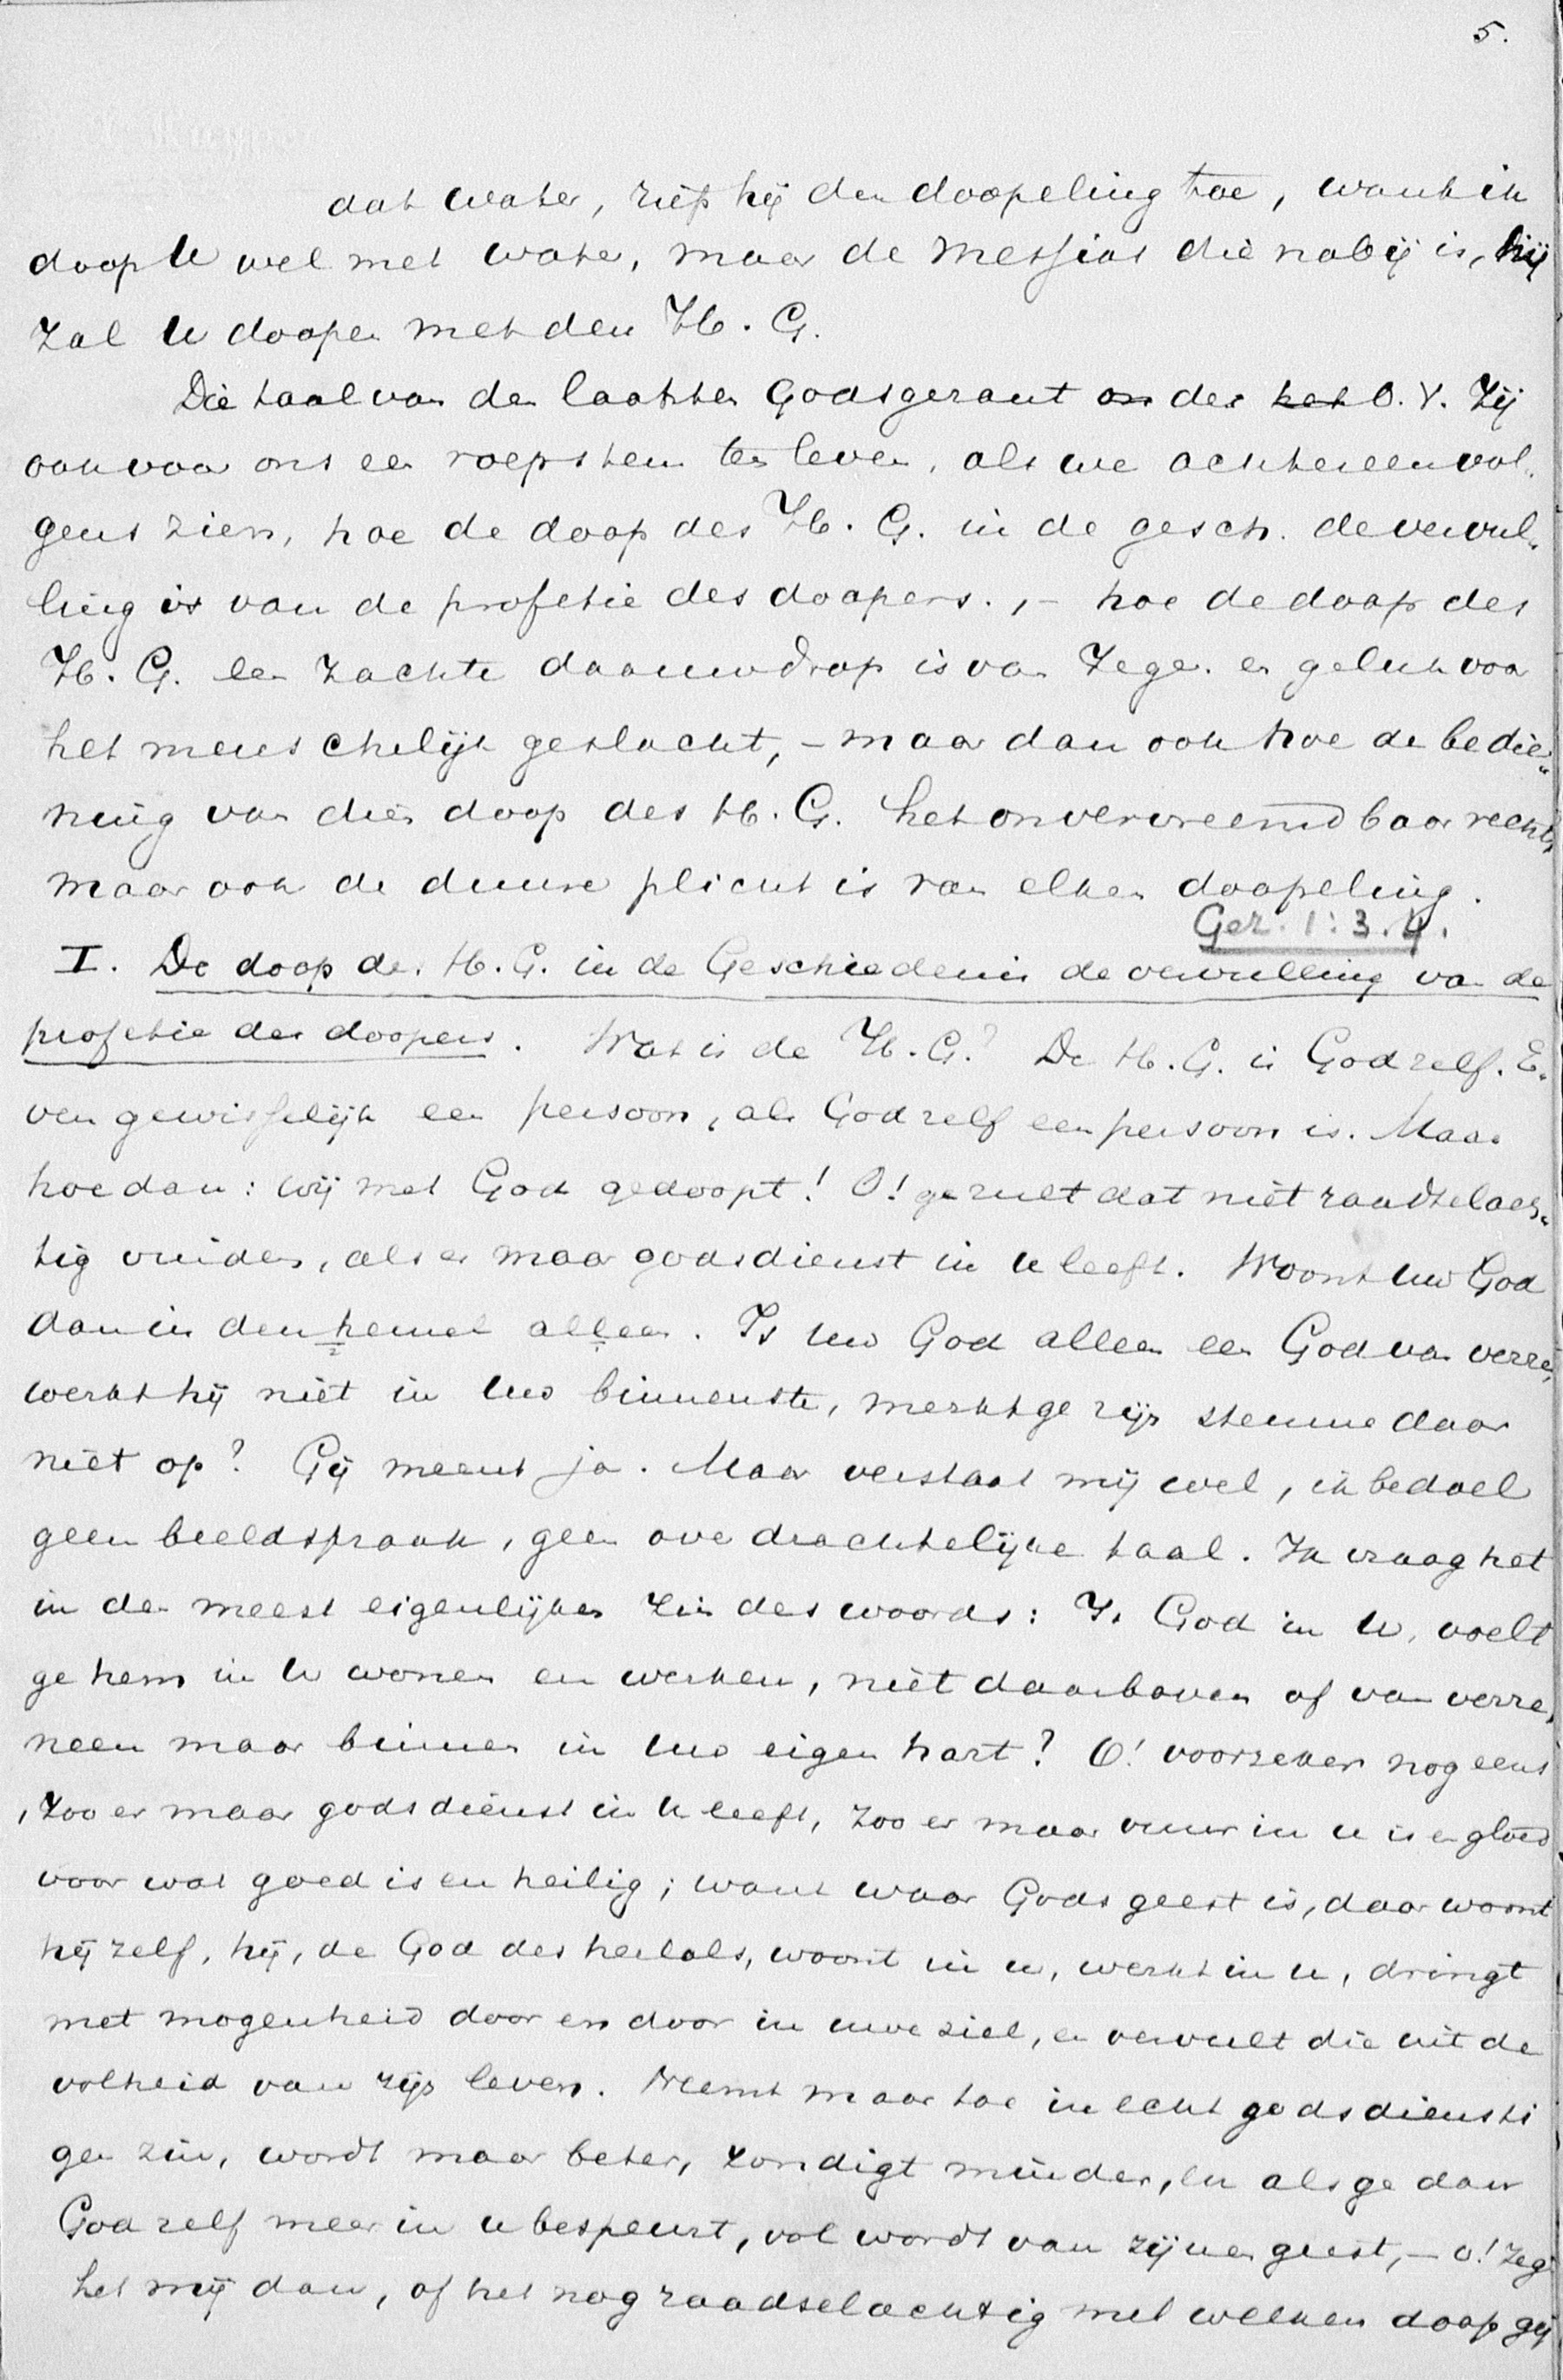 5.
dat water, riep hij den doopeling toe, want ik
doop U wel met water, maar de Messias die nabij is, hij
zal U doopen met den H. G.
Die taal van den laatsten Godsgezant onder het O. V. zij
ook voor ons een roepstem ten leven, als we achtereenvol-
gens zien, hoe de doop des H. G. in de gesch. de vervul-
ling is van de profetie des doopers., – hoe de doop des
H. G. een zachte daauwdrop is van zegen en geluk voor
het menschelijk geslacht, – maar dan ook hoe de bedie-
ning van dien doop des H. G. het onvervreemdbaar recht,
maar ook de duure plicht is van elken doopeling.
Gez. 1:3.4.
I. De doop des H. G. in de Geschiedenis de vervulling van de
profetie des doopers. Wat is de H. G.? De H. G. is God zelf. E-
ven gewisselijk een persoon, als God zelf een persoon is. Maar
hoe dan: wij met God gedoopt! O! ge zult dat niet raadselach-
tig vinden, als er maar godsdienst in U leeft. Woont uw God
dan in den hemel alleen. Is uw God alleen een God van verre,
werkt hij niet in uw binnenste, merkt ge zijn stemme daar
niet op? Gij meent ja. Maar verstaat mij wel, ik bedoel
geen beeldspraak, geen overdrachtelijke taal. Ik vraag het
in den meest eigenlijken zin des woords: Is God in U, voelt
ge hem in U wonen en werken, niet daarboven of van verre,
neen maar binnen in uw eigen hart? O! voorzeker nog eens
, zoo er maar godsdienst in U leeft, zoo er maar vuur in u is en gloed
voor wat goed is en heilig; want waar Gods geest is, daar woont
hij zelf, hij, de God des heelals, woont in u, werkt in u, dringt
met mogenheid door en door in uwe ziel, en vervult die uit de
volheid van zijn leven. Neemt maar toe in echt godsdiensti
gen zin, wordt maar beter, zondigt minder, en als ge dan
God zelf meer in u bespeurt, vol wordt van zijnen geest, – o! zeg
het mij dan, of het nog raadselachtig met welken doop gij